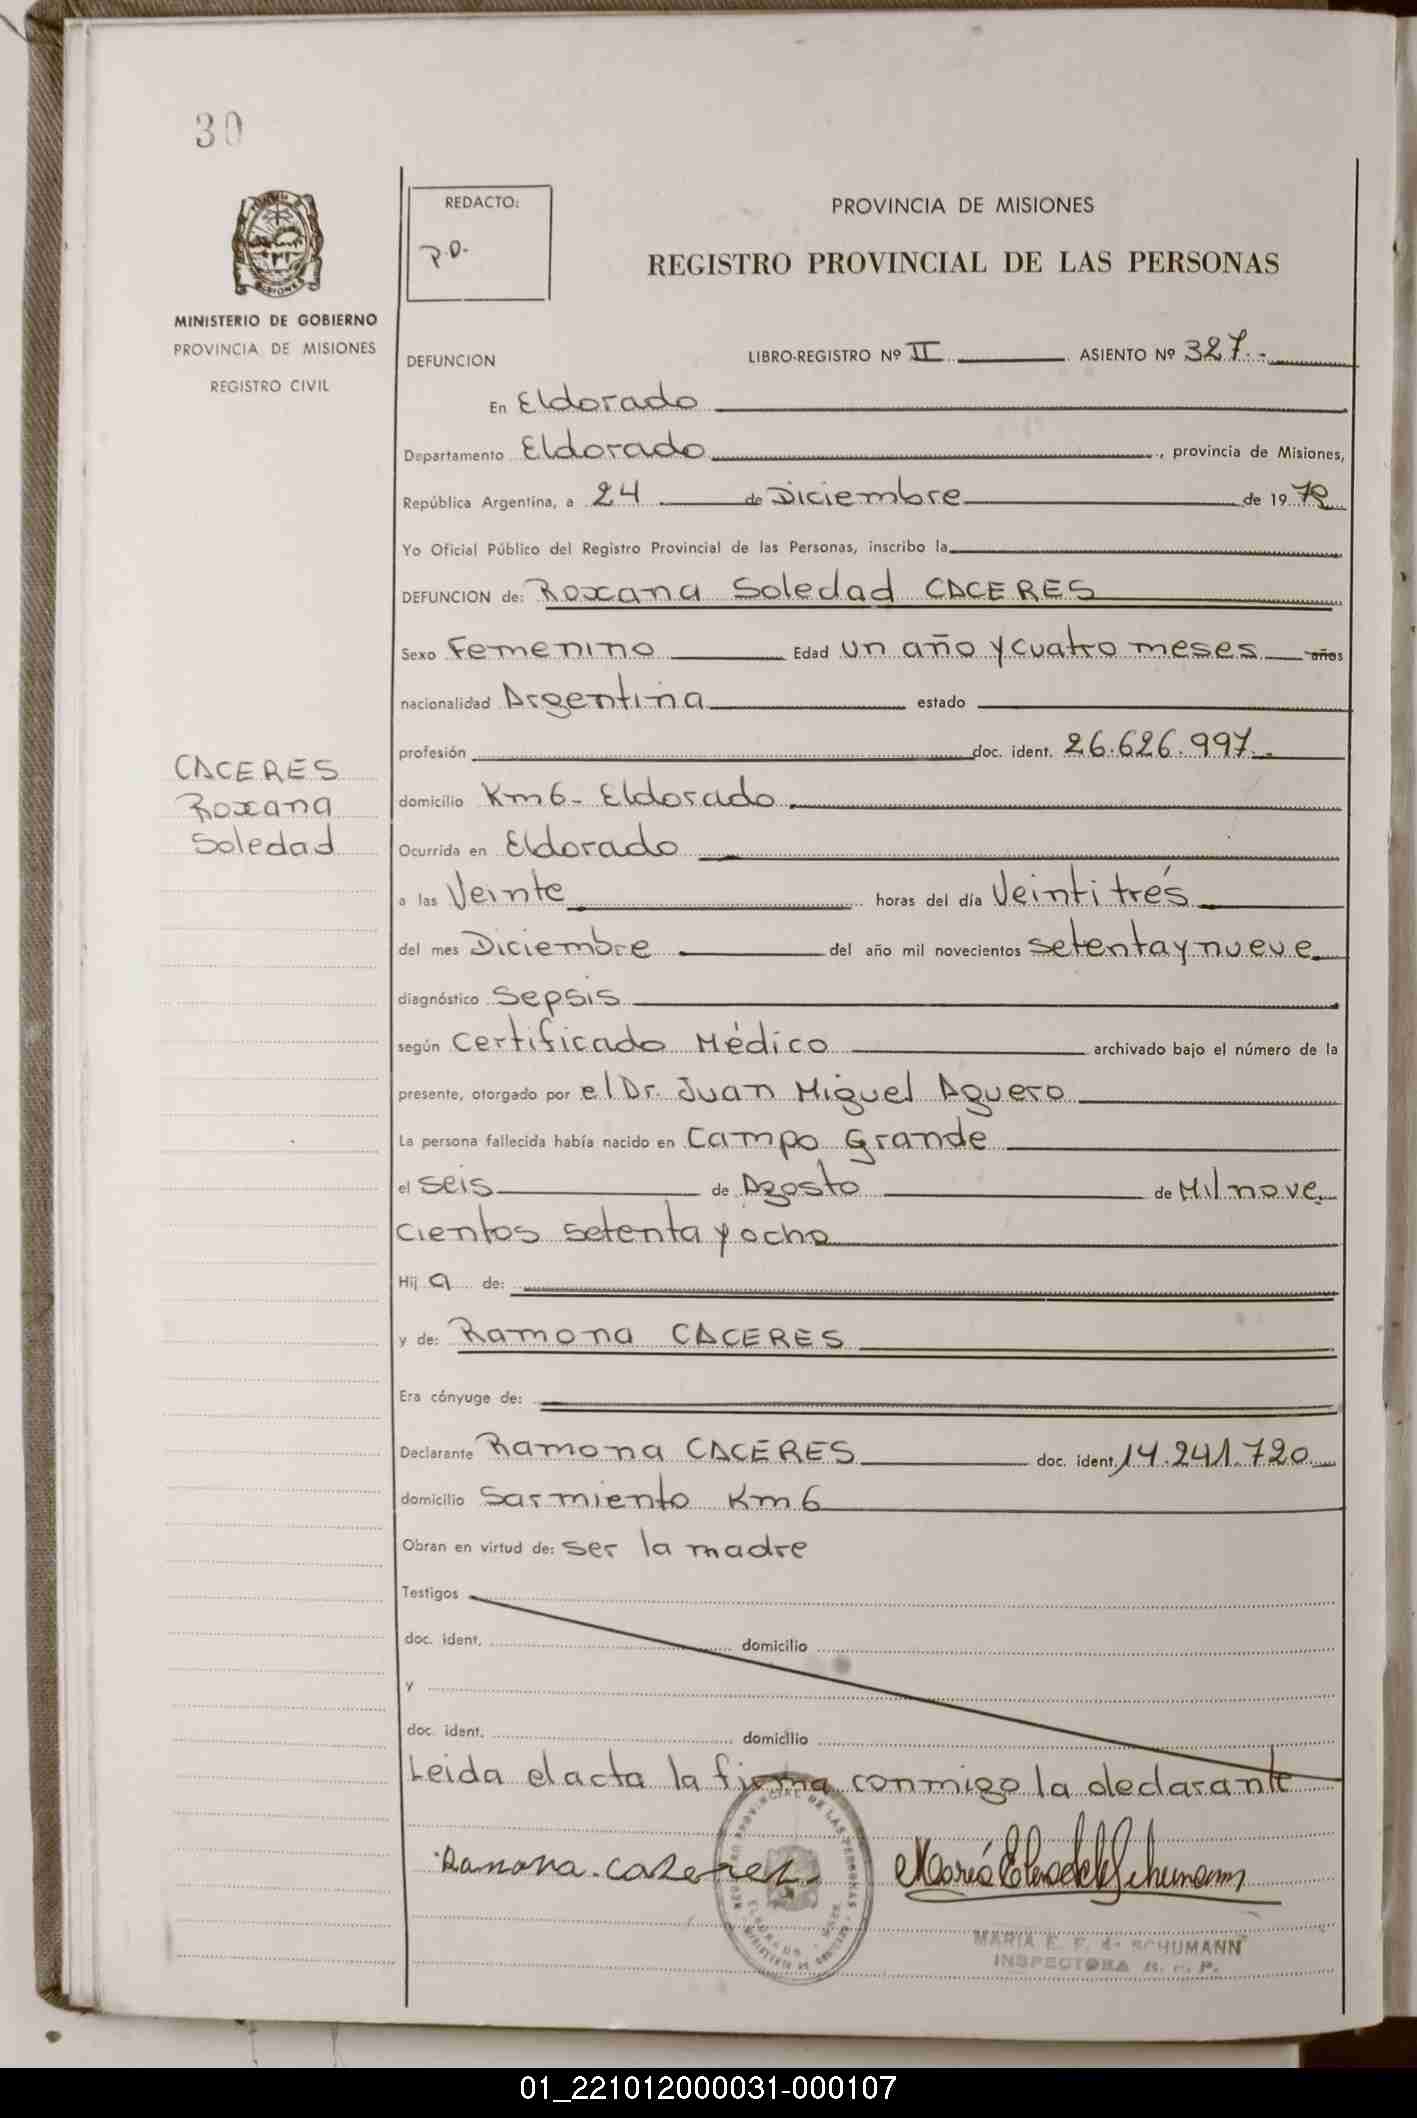 30
REDACTO:
P.D.
PROVINCIA DE MISIONES
REGISTRO PROVINCIAL DE LAS PERSONAS
MINISTERIO DE GOBIERNO
PROVINCIA DE MISIONES
REGISTRO CIVIL
DEFUNCION LIBRO-REGISTRO Nº II ASIENTO Nº 327.-
En Eldorado
Departamento Eldorado, provincia de Misiones,
República Argentina, a 24 de Diciembre de 1979
Yo Oficial Público del Registro Provincial de las Personas, inscribo la
DEFUNCION de: Roxana Soledad CACERES
Sexo Femenino Edad un año y cuatro meses años
nacionalidad Argentina estado
profesión doc. ident. 26.626.997.-
CACERES
Roxana
Soledad
domicilio Km 6 - Eldorado
Ocurrida en Eldorado
a las Veinte horas del día Veintitrés
del mes Diciembre del año mil novecientos setenta y nueve
diagnóstico Sepsis
según Certificado Médico archivado bajo el número de la
presente, otorgado por el Dr. Juan Miguel Aguero
La persona fallecida había nacido en Campo Grande
el seis de Agosto de Mil nove
cientos setenta y ocho
Hij a de:
y de: Ramona CACERES
Era cónyuge de:
Declarante Ramona CACERES doc. ident. 14.241.720
domicilio Sarmiento Km 6
Obran en virtud de: ser la madre
Testigos
doc. ident. domicilio
y
doc. ident. domicilio
Leida el acta la firma conmigo la declarante
Ramona. Caseres
MARIA E. F. de SCHUMANN
INSPECTORA R. P. P.
01_221012000031-000107